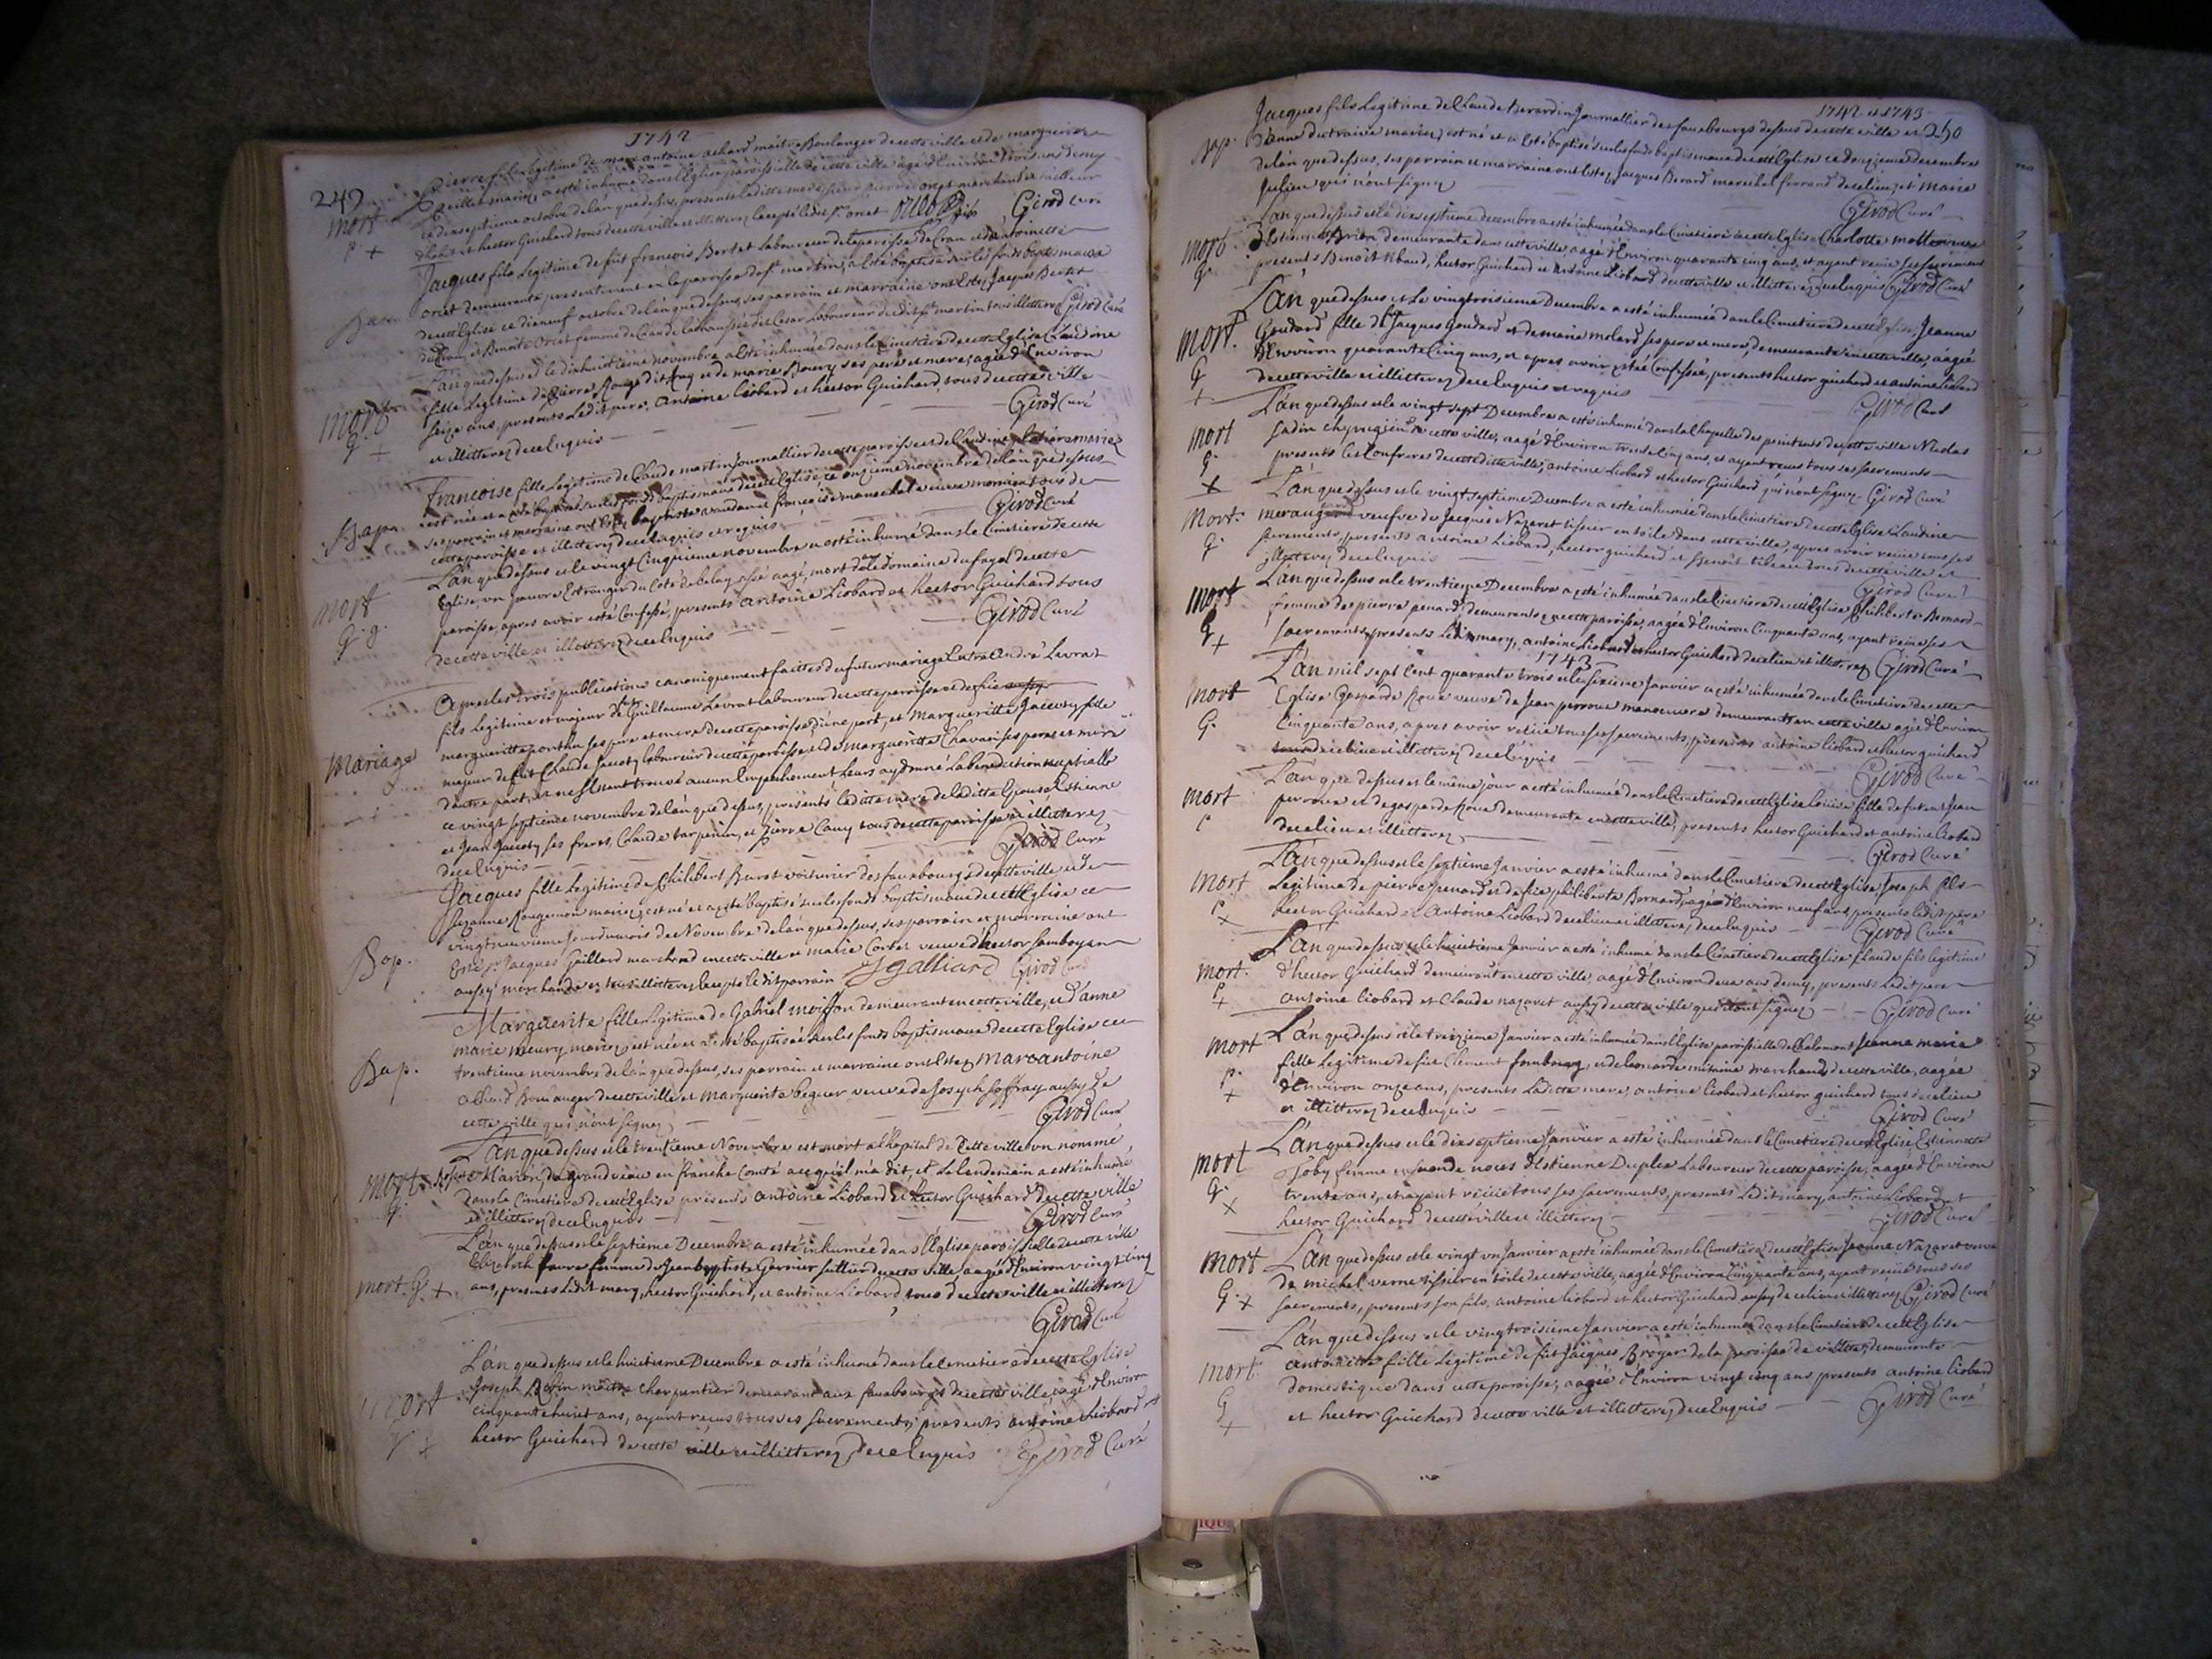 1742
249
Pierre fils legitime de marc antoine achard maitre Boulanger de cette ville et de marguerite
mariez, a esté inhumé dans l'Eglise paroissialle de cette ville agé d'Environ trois ans demy
ce dixseptieme octobre de l'an que dessus, presents
mort
et hector Guichard tous de cette ville et illitterez Excepté ledit sr orcet Girod Curé
Jacques fils Legitime de fut francois Bertet Laboureur de la paroisse de Cran et d'antoinette
orcet demeurante presentement en la paroisse de st martin, a Esté baptisé sur les fonds baptismaux
de cette Eglise ce dixneuf octobre de l'an que dessus, ses parrain et marraine ont Estez Jacques Bertet
Laboureur dudit st martin tous illitterez Girod Curé
L'an que dessus et le dixhuitieme novembre a esté inhumée dans le Cimetiere de cette Eglise Claudine
fille Legitime de pierre Rouge dit Rey et de marie Boury ses pere et mere, agée d'Environ
mort
G +
seize ans, presents Ledit pere, Antoine Liobard et hector Guichard tous de cette ville
et illitterez de ce Enquis Girod Curé
francoise fille Legitime de Claude martin Journallier de cette paroisse et de Claudine mariez
Bap.
est née et a esté baptisée sur les fonds baptismaux de cette Eglise ce onzieme novembre de l'an que dessus
ses parrain et marraine ont Estez baptiste et francoise
cette paroisse et illitterez de ce Enquis et requis Girod Curé
L'an que dessus et le vingt Cinquieme novembre a esté inhumé dans le Cimetiere de cette
mort
G. g.
Eglise, un pauvre Estranger du Coté de belay assé aagé, mort dans le domaine du fayol de cette
paroisse, apres avoir esté Confessé, presents Antoine Liobard et hector Guichard tous
de cette ville et illitterez de ce Enquis Girod Curé
Apres les trois publications canoniquement faittes du futur mariage Entre André Levrat
fils Legitime et majeur de fut Guillaume Levrat Laboureur de cette paroisse et de
Mariage
margueritte ponthu ses pere et mere de cette paroisse d'une part, et Margueritte Jacouty fille
majeur de fut Claude Jacouty laboureur de cette paroisse et de margueritte Chavan ses pere et mere
d'autre part, et ne s'Estant trouvé aucun Empechement Leurs ay donné La benediction nuptialle
ce vingt septieme novembre de l'an que dessus, presents la ditte mere de la ditte Epouse, Estienne
et Jean Jacouty ses freres, Claude tarpenin, et Pierre Cany tous de cette paroisse et illitterez
de ce Enquis Girod Curé
Jacques fille Legitime de philibert Buret voiturier des fauxbourgs de cette ville et de
Suzanne Rougemon mariez est né et a esté baptisé sur les fonds baptismaux de cette Eglise ce
Bap.
vingt neuvieme Jour du mois de Novembre de l'an que dessus, ses parrain et marraine ont
Esté sr Jacques Galliard marchand en cette ville et marie Corbet veuve d'hector Jamboyan
aussy marchande et tous illitterez Excepté ledit parrain J galliard Girod Curé
Marguerite fille Legitime de Gabriel moisson demeurant en cette ville, et d'anne
marie meury mariez est née et a esté baptisée sur les fonds baptismaux de cette Eglise ce
Bap.
trentieme novembre de l'an que dessus, ses parrain et marraine ont Estez Marc antoine
achard Boulanger de cette ville et marguerite beguer veuve de Joseph Joffray aussy de
cette ville qui n'ont signez Girod Curé
L'an que dessus et le trentieme Novembre est mort a l'hopital de Cette ville un nommé
mort
G.
Marion, de grand veau en franche Comté a ce qu'il m'a dit, et Le Lendemain a esté inhumé
dans le Cimetiere de cette Eglise presents antoine Liobard et hector Guichard de cette ville
et illitterez de ce Enquis Girod Curé
L'an que dessus et le septieme Decembre a esté inhumée dans l'Eglise paroissialle de cette ville
Elizabeth favre femme de Jean baptiste Garnier sellier de cette ville, aagée d'Environ vingt cinq
mort G +
ans, presents Ledit mary, hector Guichard, et antoine Liobard tous de cette ville et illitterez
Girod Curé
L'an que dessus et le huitieme Decembre a esté inhumé dans le Cimetiere de cette Eglise
mort
Joseph Robin maitre Charpentier demeurant aux fauxbourgs de cette ville agé d'Environ
cinquante huict ans, ayant recus tous ses sacrements, presents antoine Liobard et
hector Guichard de cette ville et illitterez de ce Enquis Girod Curé
1742 et 1743
250
Jacques fils Legitime de Claude Berardin Journallier des fauxbourgs dessus de cette ville et
Bap.
d'anne dutraive mariez, est né et a Esté baptisé sur les fonds baptismaux de cette Eglise ce douzieme decembre
de l'an que dessus, ses parrain et marraine ont Estez Jacques Berard marechal ferrand de ce lieu, et marie
Julien qui n'ont signez Girod Curé
L'an que dessus et le dixseptieme decembre a esté inhumée dans le Cimetiere de cette Eglise Charlotte
mort
G
d'Estienne Brien demeurante dans cette ville, aagé d'Environ quarante cinq ans, et ayant recue ses sacrements
presents Benoit tibaud, hector Guichard et Antoine Liobard de cette ville et illitterez Enquis Girod Curé
L'an que dessus et Le vingtroisieme Decembre a esté inhumée dans le Cimetiere de cette Eglise, Jeanne
mort.
G
+
Goudard fille de fut Jacques Goudard et de marie molard ses pere et mere, demeurante en cette ville, aagée
d'Environ quarante Cinq ans, et apres avoir estée Confessée, presents hector guichard et antoine Liobard
de cette ville et illitterez de ce Enquis et requis Girod Curé
L'an que dessus et le vingt sept Decembre a esté inhumé dans la Chapelle des penitents de cette ville Nicolas
mort
G.
+
Sadin chyrugien de cette ville, aagé d'Environ trente Cinq ans, et ayant recus tous ses sacrements
presents les Confreres de cette ditte ville, antoine Liobard et hector Guichard qui n'ont signez Girod Curé
L'an que dessus et le vingt septieme Decembre a esté inhumée dans le Cimetiere de cette Eglise Claudine
Mort.
G.
veufve de Jacques Nazaret tissier en toile dans cette ville, apres avoir recue tous ses
sacrements, presents antoine Liobard, hector guichard et Benoit tibaud tous de cette ville et
illitterez de ce Enquis Girod Curé
L'an que dessus et le trentieme Decembre a esté inhumée dans le Cimetiere de cette Eglise Philiberte Bernard
mort
G
+
femme de pierre penard, demeurante en cette paroisse, aagée d'Environ Cinquante ans, ayant recue ses
sacrements, presents Ledit mary, antoine Liobard et hector Guichard de ce lieu et illitterez Girod Curé
1743
L'an mil sept Cent quarante trois et le sixieme Janvier a esté inhumée dans le Cimetiere de cette
mort
G.
Eglise Gasparde Roux veuve de Jean perroux manoeuvre demeurante en cette ville agée d'Environ
Cinquante ans, apres avoir recue tous ses sacrements, presents antoine Liobard et hector guichard
de ce lieu et illitterez de ce Enquis Girod Curé
L'an que dessus et le même jour a esté inhumée dans le Cimetiere de cette Eglise Louise fille de fut Jean
mort
perroux et de gasparde Roux demeurante en cette ville, presents hector Guichard et antoine Liobard
de ce lieu et illitterez Girod Curé
L'an que dessus et le septieme Janvier a esté inhumé dans le Cimetiere de cette Eglise Joseph fils
mort
+
Legitime de pierre penard et de fut philiberte Bernard, agé d'Environ neuf ans, presents ledit pere
hector Guichard et Antoine Liobard de ce lieu et illitterez de ce Enquis Girod Curé
L'an que dessus et le huictieme Janvier a esté inhumé dans le Cimetiere de cette Eglise Claude fils legitime
mort.
+
d'hector Guichard demeurant en cette ville, aagé d'Environ deux ans demy, presents Ledit pere
antoine Liobard et Claude nazaret aussy de cette ville qui n'ont signez Girod Curé
L'an que dessus et le treizieme Janvier a esté inhumée dans l'Eglise paroissialle de Chalamont Jeanne marie
mort
p.
+
fille Legitime de fut Clement et de Leonarde marchands de cette ville, aagée
d'Environ onze ans, presents La ditte mere, antoine liobard et hector guichard tous de ce lieu
et illitterez de ce Enquis Girod Curé
L'an que dessus et le dixseptieme Janvier a esté inhumée dans le Cimetiere de cette Eglise Estiennette
mort
G.
+
Joby femme en seconde noces d'Estienne Duplex Laboureur de cette paroisse, aagée d'Environ
trente ans, et ayant recue tous ses sacrements, presents Ledit mary, antoine Liobard et
hector Guichard de cette ville et illitterez Girod Curé
L'an que dessus et le vingt un Janvier a esté inhumée dans le Cimetiere de cette Eglise Jeanne Nazaret veuve
mort
G. +
de michel verne tissier en toile de cette ville, aagée d'Environ Cinquante ans, ayant recue tous ses
sacrements, presents son fils, antoine liobard et hector Guichard aussy de ce lieu et illitterez Girod Curé
L'an que dessus et le vingtroisieme Janvier a esté inhumée dans le Cimetiere de cette Eglise
mort
G
+
antoinette fille Legitime de fut Jacques Broyer de la paroisse de villette, demeurante
domestique dans cette paroisse, aagée d'Environ vingt cinq ans presents antoine Liobard
et hector Guichard de cette ville et illitterez de ce Enquis Girod Curé